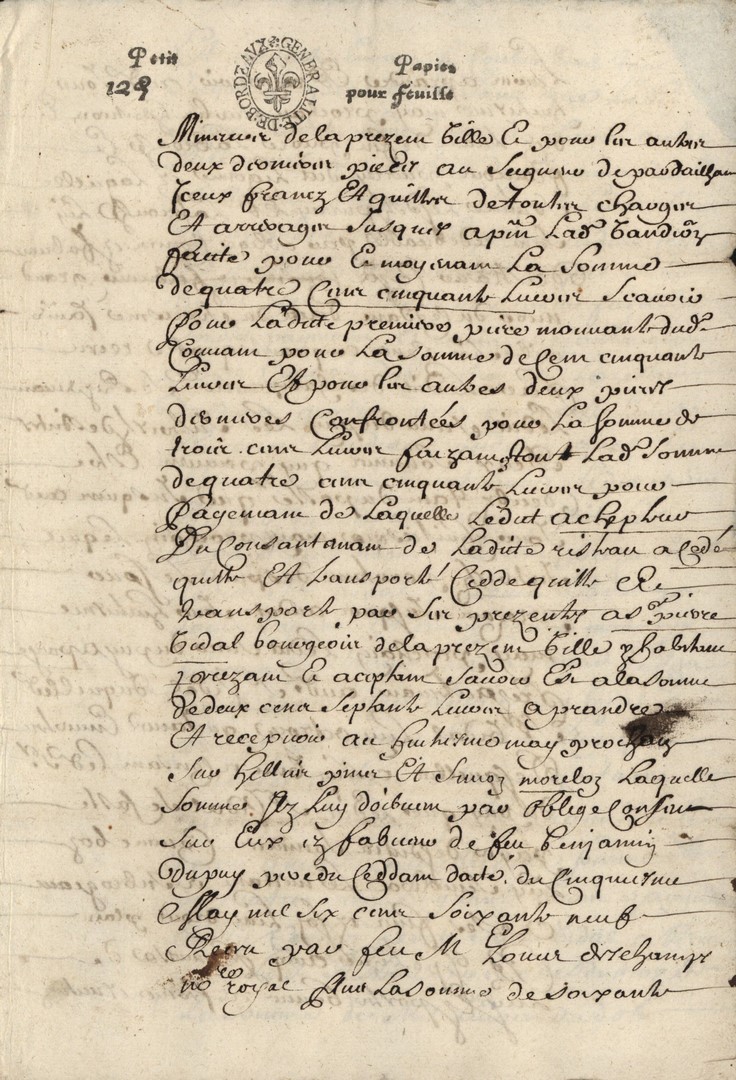 Petit Papier
12 d pour feuille
GENERALITE DE BORDEAUX
de la prezent Ville Et pour les autres
deux dernieres pieces au Seigneur de pardailhan
Iceux francz Et quittes de toutes charges
Et arrerages Jusques a pñt Lad. vandiõn
faite pour Et moyenant La Somme
de quatre Cens cinquante Livres Scavoir
Pour Ladite premiere piece mouvante dud.
Couvam pour La Somme de Cent cinquante
Livres Et pour les autres deux pieces
dernieres Confrontées pour La Somme de
trois cens Livres faizam tout Lad. Somme
de quatre cens cinquante Livres pour
Pagemam de Laquelle Ledit achepteur
Du Consantemam de Ladite risteau a Cedé
quitté Et transporté Cedde quitte Et
transporte par ses prezentes a Sr. pierre
Vidal bourgeois de la prezent Ville y habitam
prezam Et aceptam Savoir Est a la somme
de deux cens septante Livres a prandre
Et recepvoir au huitiesme may prochain
Sur hellies pines Et Simon moreloz Laquelle
Somme Ilz Luy doibvem par Oblige Consenti
Sur Eux en fabveur de feu benjamin
Dupuy pere du Ceddam datté du Cinquiesme
May mil six cens soixante neuf
par feu M. Louis deschamps
nore. royal Plus La somme de soixante